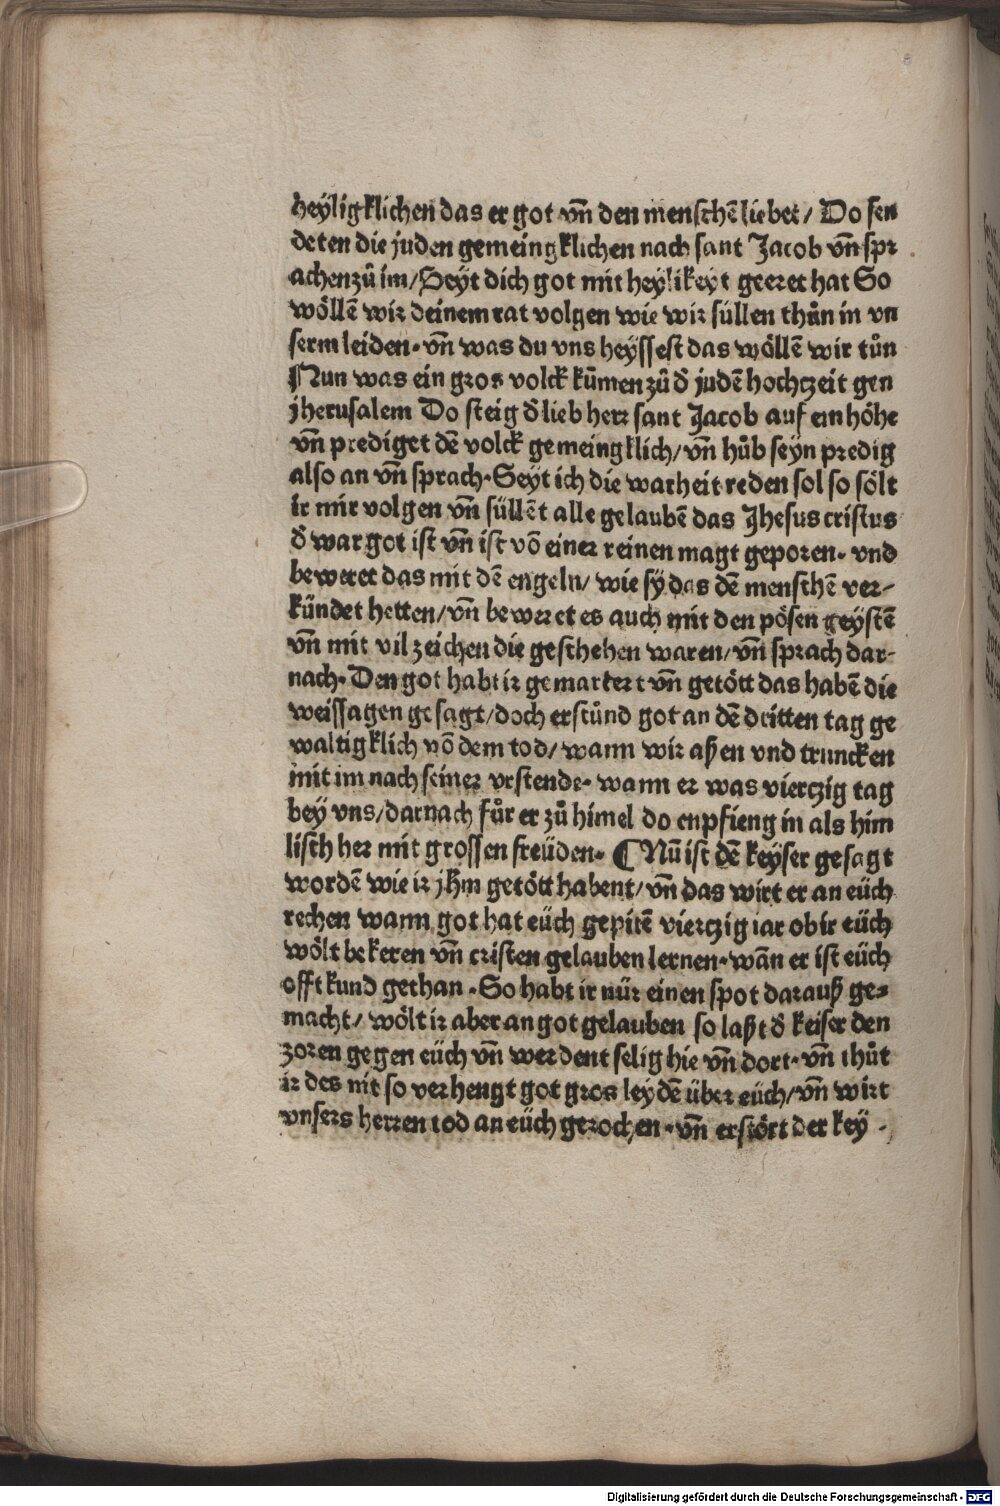 heÿligklichen das er got vn̄ den menschē liebet/ Do sen
deten die juden gemeingklichen nach sant Jacob vn̄ spr
achen zů im/ Seyt dich got mit heÿlikeyt geeret hat So
wöllē wir deinem rat volgen wie wir süllen thůn in vn
serm leiden· vn̄ was du vns heÿssest das wöllē wir tůn
Nun was ein gros volck kūmen zů d̄ judē hochczeit gen
jherusalem Do steig d̄ lieb herr sant Jacob auf ein höhe
vn̄ prediget dē volck gemeingklich/ vn̄ hůb seÿn predig
also an vn̄ sprach· Seyt ich die warheit reden sol so sölt
ir mir volgen vn̄ süllēt alle gelaubē das Jhesus cristus
d̄ war got ist vn̄ ist vō einer reinen magt geporen· vnd
beweret das mit dē engeln/ wie sÿ das dē menschē ver-
kündet hetten/ vn̄ beweret es auch mit den pösen geÿstē
vn̄ mit vil zeichen die geschehen waren/ vn̄ sprach dar-
nach· Den got habt ir gemartert vn̄ getött das habē die
weissagen gesagt/ doch erstůnd got an dē dritten tag ge
waltigklich vō dem tod/ wann wir aßen vnd truncken
mit im nach seiner vrstende· wann er was vierczig tag
beÿ vns/ darnach fůr er zů himel do enpfieng in als him
lisch her mit grossen freüden· ¶ Nū ist dē keÿser gesagt
wordē wie ir jhm̄ getött habent/ vn̄ das wirt er an eüch
rechen wann got hat eüch gepitē vierczig iar ob ir eüch
wölt bekeren vn̄ cristen gelauben lernen· wān er ist eüch
offt kund gethan · So habt ir nür einen spot darauß ge=
macht/ wölt ir aber an got gelauben so laßt d̄ keiser den
zoren gegen eüch vn̄ werdent selig hie vn̄ dort· vn̄ thůt
ir des nit so verhengt got gros leydē über eüch/ vn̄ wirt
vnsers herren tod an eüch gerochen · vn̄ erstört der key -
Digitalisierung gefördert durch die Deutsche Forschungsgemeinschaft - DFG